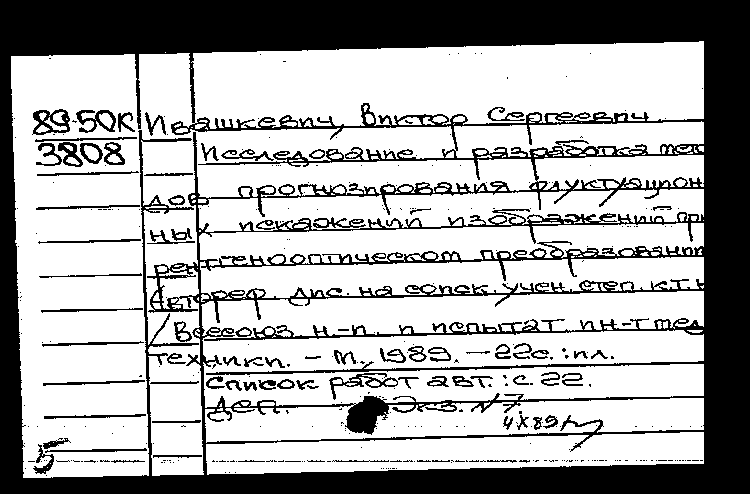 89-50К Ивашкевич, Виктор Сергеевич
3808 Исследование и разработка мето
дов прогнозирования флуктуацион
ных искажений изображений при
рентгенооптическом преобразовании
Автореф. дис. на соиск. учен. степ. к.т.н
/Всесоюз. н.-и. и испытат. ин-т мед
техники. – М., 1989. – 22с. : ил.
Список работ авт.: с. 22.
Деп. Экз. N 7
5